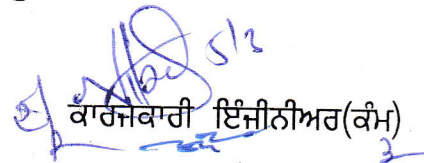 5/3
ਕਾਰਜਕਾਰੀ ਇੰਜੀਨੀਅਰ(ਕੰਮ)